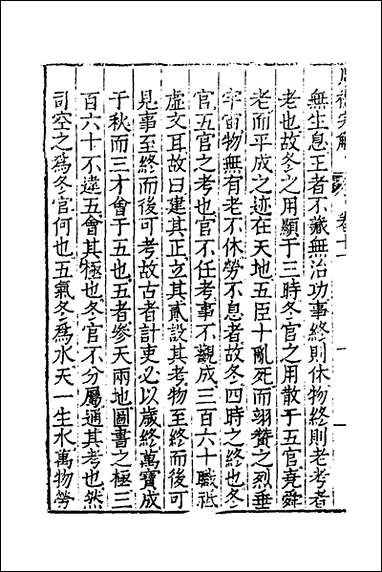 周禮完解 卷十一 一
無生息王者不藏無治功事終則休物終則老考者
老也故冬之用顯于三時冬官之用散于五官堯舜
老而平成之迹在天地五臣十亂死而翊贊之烈垂
宇宙物無有老不休勞不息者故冬四時之終也冬
官五官之考也官不任考事不觀成三百六十職祗
虛文耳故曰建其正立其貳設其考物至終而後可
見事至終而後可考故古者計吏必以歲終萬寶成
于秋而三才會于五也五者參天兩地圖書之極三
百六十不違五會其極也冬官不分屬通其考也然
司空之爲冬官何也五氣冬爲水天一生水萬物勞